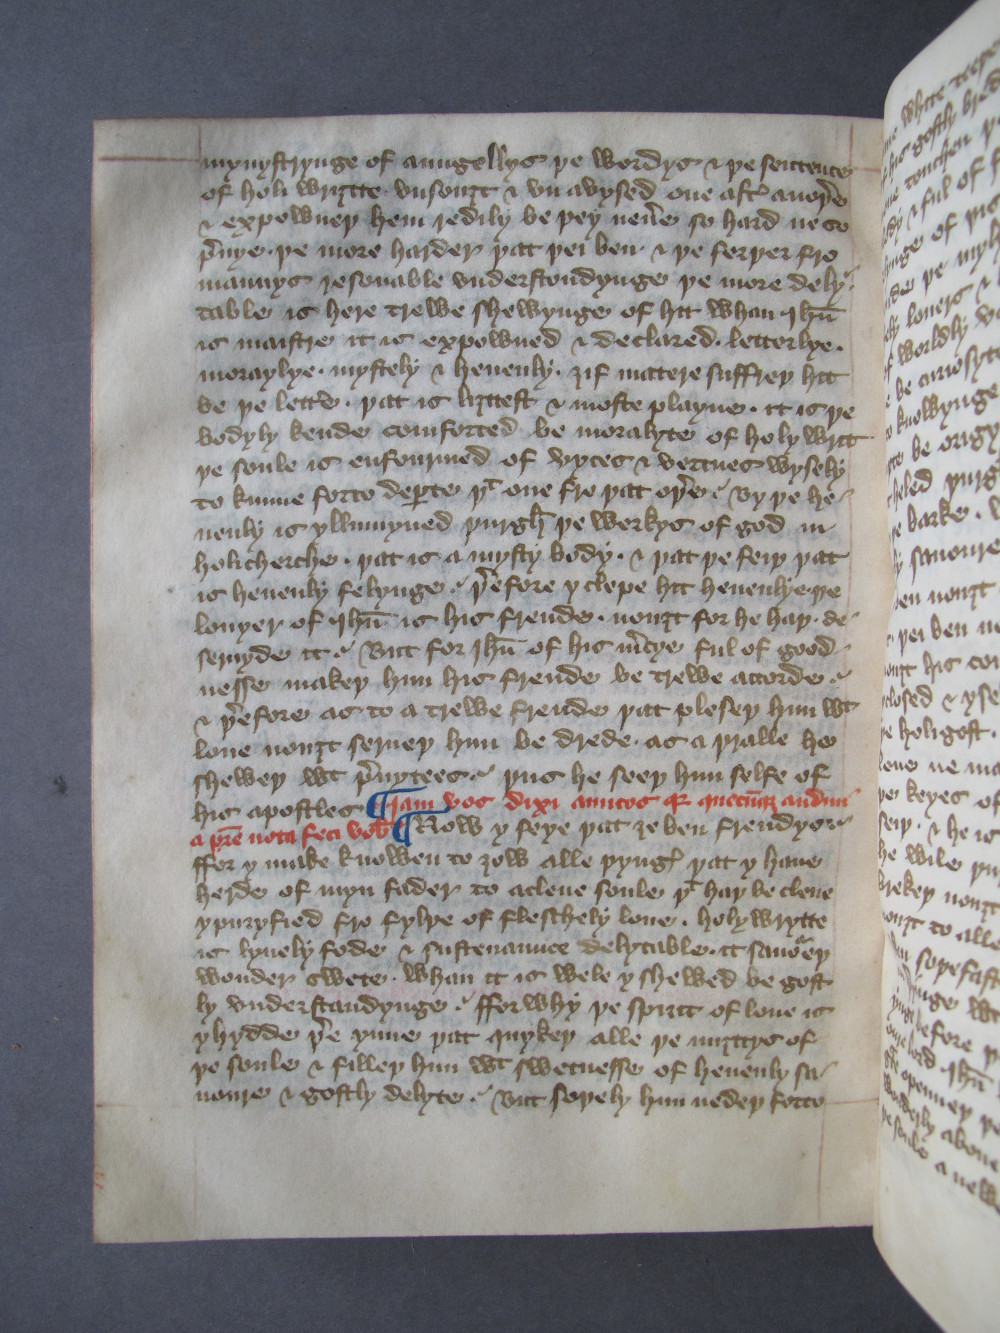 mynystrynge of aungellys þe wordys & þe sentence
of holi wryȝtte vnsouȝt & vn avysed one aftir anoþere
& expowneþ hem redily be þey neuere so hard ne so
pryuye. þe more harder þat þei ben. & þe ferþer fro
mannys resonable vnderstondynge þe more dely
table is here trewe shewynge of hit whan ihū
is maistre it is expowned & declared. letterlye.
moraylye. mystely & heuenly. ȝif matere suffreþ hit
be þe lettre. þat is liȝtest & moste playne. it is þe
bodyly kende comforted be moralyte of holy writ
þe soule is enfourmed of vyces & vertues wysely
to kunne forto deperte þt one fro þat oþere. By þe he
uenly is yllumyned þurgh þe werkys of god in
holicherche. þat is a mysty body. & þat þe seiþ þat
is heuenly felynge. þerefore y clepe hit heuenlye. þe
louyer of ihū is his frende. nouȝt for he haþ de
seruyde it. But for ihū of his mercye ful of good
nesse makeþ him his frende be trewe accorde.
& þerefore as to a trewe frende þat pleseþ him wt
loue nouȝt serueþ him be drede. as a þralle he
sheweþ wt pryuytees. þus he seeþ him selfe of
his apostles ¶ Jam vos dixi amicos qr quecūq; audiui
a pre nota feci vob ¶ Now y seye þat ȝe ben frendys
ffor y make knowen to ȝow alle þyngis þat y haue
herde of myn fader to aclene soule þt haþ be clene
ypuryfied fro fylþe of fleschely loue. holy wrytte
is lyuely fode & sustenaunce delytable. it sauoureþ
wonder swete. whan it is wele y shewed be gost
ly vnderstandynge. ffor why þe spirit of loue is
yhydde þere ynne þat quykeþ alle þe miȝttys of
þe soule & filleþ him wt swetnesse of heuenly sa
uoure & gostly delyte. But soþely him nedeþ forto